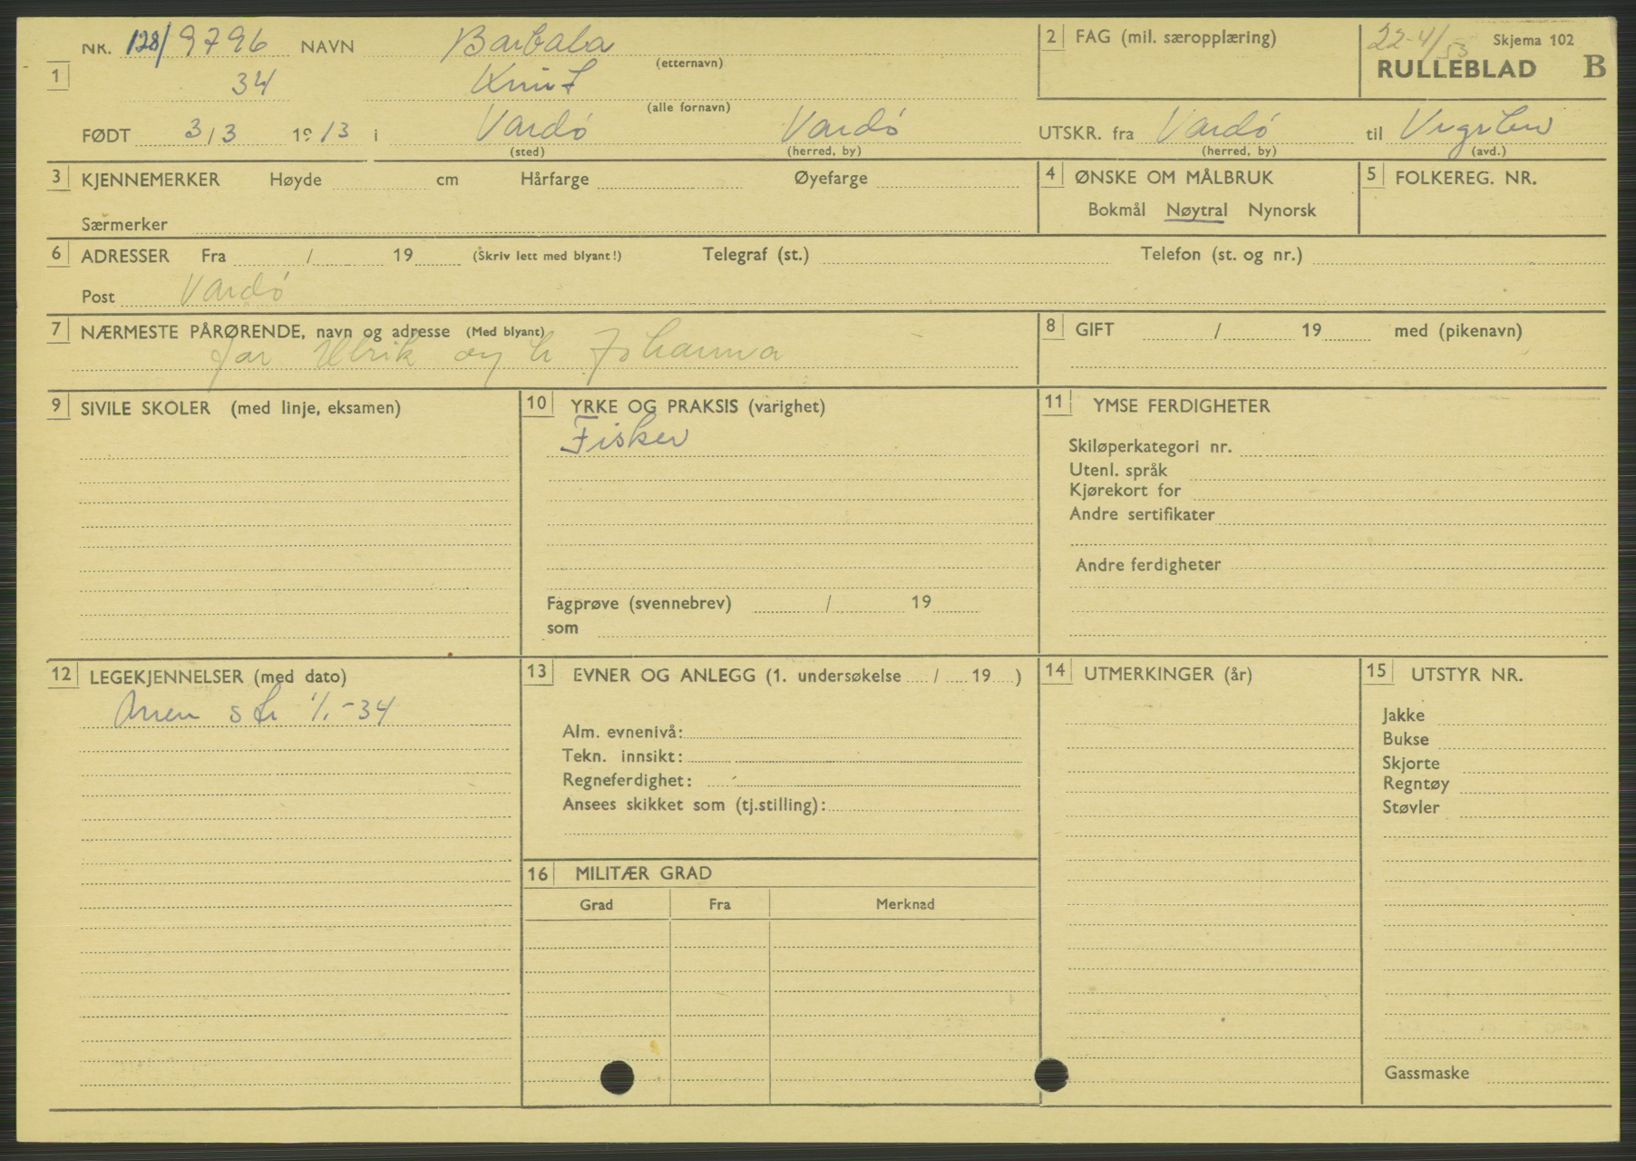 NR. 128/9796 NAVN Barbala
(etternavn)
2 FAG (mil. særopplæring)
22-4/53 Skjema 102
RULLEBLAD B
1
34 Knut
(alle fornavn)
FØDT 3/3 1913 i Vardö Vardö
(sted) (herred, by)
UTSKR. fra Vardö til
(herred, by) (avd.)
3 KJENNEMERKER Høyde cm Hårfarge Øyefarge
Særmerker
4 ØNSKE OM MÅLBRUK
Bokmål Nøytral Nynorsk
5 FOLKEREG. NR.
6 ADRESSER Fra / 19 (Skriv lett med blyant!) Telegraf (st.) Telefon (st. og nr.)
Post Vardö
7 NÆRMESTE PÅRØRENDE, navn og adresse (Med blyant)
far Ulrik og h Johanna
8 GIFT / 19 med (pikenavn)
9 SIVILE SKOLER (med linje, eksamen)
10 YRKE OG PRAKSIS (varighet)
Fisker
Fagprøve (svennebrev) / 19
som
11 YMSE FERDIGHETER
Skiløperkategori nr.
Utenl. språk
Kjørekort for
Andre sertifikater
Andre ferdigheter
12 LEGEKJENNELSER (med dato)
1/1-34
13 EVNER OG ANLEGG (1. undersøkelse / 19 )
Alm. evnenivå:
Tekn. innsikt:
Regneferdighet:
Ansees skikket som (tj.stilling):
14 UTMERKINGER (år)
15 UTSTYR NR.
Jakke
Bukse
Skjorte
Regntøy
Støvler
Gassmaske
16 MILITÆR GRAD
Grad Fra Merknad